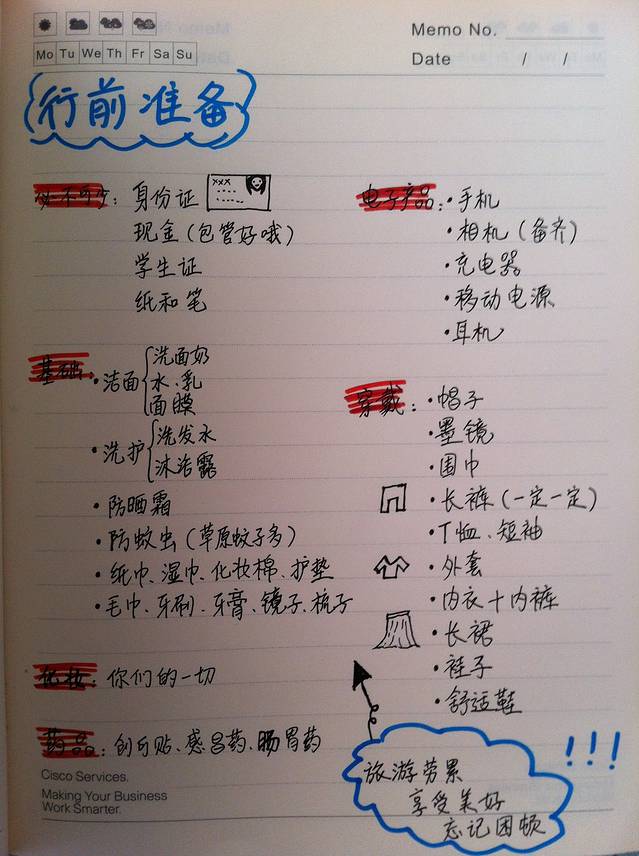 Memo No.
Mo Tu We Th Fr Sa Su
Date / /
行前准备
必不可少：身份证
xxx
现金（包管好哦）
学生证
纸和笔
基础：
·洁面{洗面奶
水、乳
面膜
·洗护{洗发水
沐浴露
·防晒霜
·防蚊虫（草原蚊子多）
·纸巾、湿巾、化妆棉、护垫
·毛巾、牙刷、牙膏、镜子、梳子
：你们的一切
药品：创可贴、感冒药、肠胃药
电子产品：·手机
·相机（备齐）
·充电器
·移动电源
·耳机
穿戴：·帽子
·墨镜
·围巾
·长裤（一定一定）
·T恤、短袖
·外套
·内衣+内裤
·长裙
·袜子
·舒适鞋
!!!
旅游劳累
享受美好
忘记困顿
Cisco Services.
Making Your Business
Work Smarter.